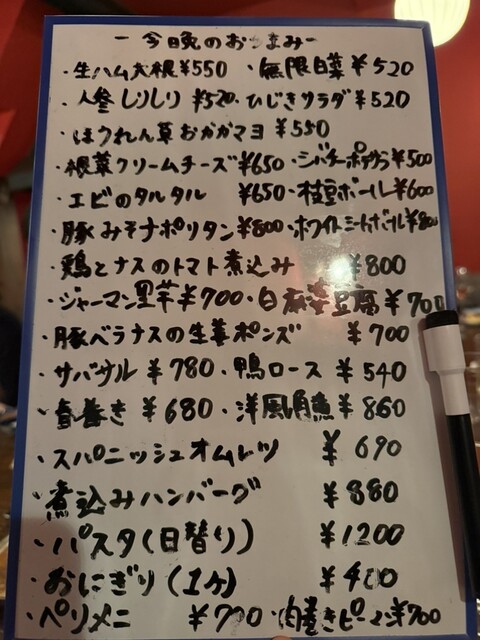 ー今晩のおつまみー
・生ハム大根¥550 ・無限白菜¥520
・人参しりしり ¥520・ひじきサラダ¥520
・ほうれん草おかかマヨ ¥550
・根菜クリームチーズ¥650・シーザーポテサラ¥500
・エビのタルタル ¥650・枝豆ボール¥600
・豚みそナポリタン¥800・ホワイトミートボール¥800
・鶏とナスのトマト煮込み ¥800
・ジャーマン里芋¥700・白麻婆豆腐¥700
・豚バラナスの生姜ポンズ ¥700
・サバサルサ ¥780・鴨ロース ¥540
・春巻き ¥680・洋風角煮¥860
・スパニッシュオムレツ ¥690
・煮込みハンバーグ ¥880
・パスタ(日替り) ¥1200
・おにぎり(1ケ) ¥400
・ペリメニ ¥700・肉巻きピーマン¥700